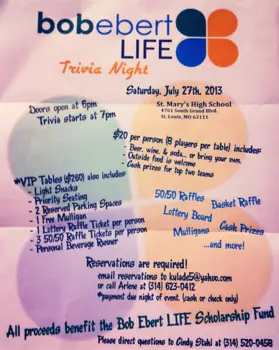 bobebert
LIFE
Trivia Night
Saturday, July 27th, 2013
St. Mary's High School
4701 South Grand Blvd.
St. Louis, MO 63111
Doors open at 6pm
Trivia starts at 7pm
$20 per person (8 players per table) includes:
- Beer, wine, & soda... or bring your own,
- Outside food is welcome
- Cash prizes for top two teams
*VIP Tables ($260) also includes:
- Light Snacks
- Priority Seating
- 2 Reserved Parking Spaces
- 1 Free Mulligan
- 1 Lottery Raffle Ticket per person
- 3 50/50 Raffle Tickets per person
- Personal Beverage Runner
50/50 Raffles
Basket Raffle
Lottery Board
Cash Prizes
Mulligans
...and more!
Reservations are required!
email reservations to kulade5@yahoo.com
or call Arlene at (314) 623-0412
*payment due night of event. (cash or check only)
All proceeds benefit the Bob Ebert LIFE Scholarship Fund
Please direct questions to Cindy Stahl at (314) 520-0458